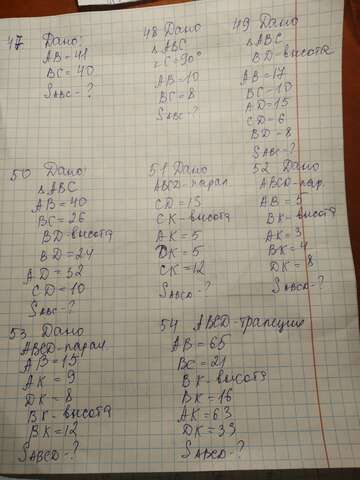 47 Дано:
AB=41
BC=40
SABC-?
48 Дано
△ABC
∠C=90°
AB=10
BC=8
SABC-?
49 Дано
△ABC
BD-высота
AB=17
BC=10
AD=15
CD=6
BD=8
SABC-?
50 Дано:
△ABC
AB=40
BC=26
BD-высота
BD=24
AD=32
CD=10
SABC-?
51 Дано
ABCD-парал.
CD=13
CK-высота
AK=5
DK=5
CK=12
SABCD-?
52 Дано
ABCD-пар.
AB=5
BK-высота
AK=3
BK=4
DK=8
SABCD-?
53 Дано
ABCD-парал.
AB=15
AK=9
DK=8
BK-высота
BK=12
SABCD=?
54 ABCD-трапеция
AB=65
BC=21
BK-высота
BK=16
AK=63
DK=33
SABCD-?